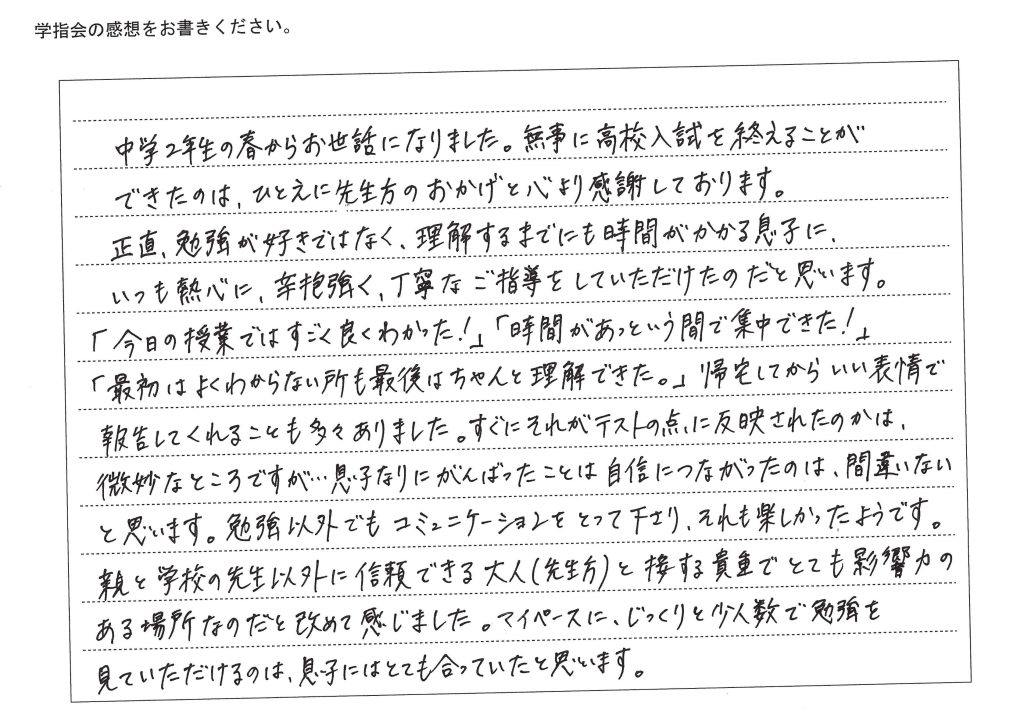 学指会の感想をお書きください。
中学2年生の春からお世話になりました。無事に高校入試を終えることが
できたのは、ひとえに先生方のおかげと心より感謝しております。
正直、勉強が好きではなく、理解するまでにも時間がかかる息子に、
いつも熱心に、辛抱強く、丁寧なご指導をしていただけたのだと思います。
「今日の授業ではすごく良くわかった!」「時間があっという間で集中できた!」
「最初はよくわからない所も最後はちゃんと理解できた。」帰宅してからいい表情で
報告してくれることも多々ありました。すぐにそれがテストの点に反映されたのかは、
微妙なところですが…息子なりにがんばったことは自信につながったのは、間違いない
と思います。勉強以外でもコミュニケーションをとって下さり、それも楽しかったようです。
親と学校の先生以外に信頼できる大人(先生方)と接する貴重でとても影響力の
ある場所なのだと改めて感じました。マイペースに、じっくりと少人数で勉強を
見ていただけるのは、息子にはとても合っていたと思います。